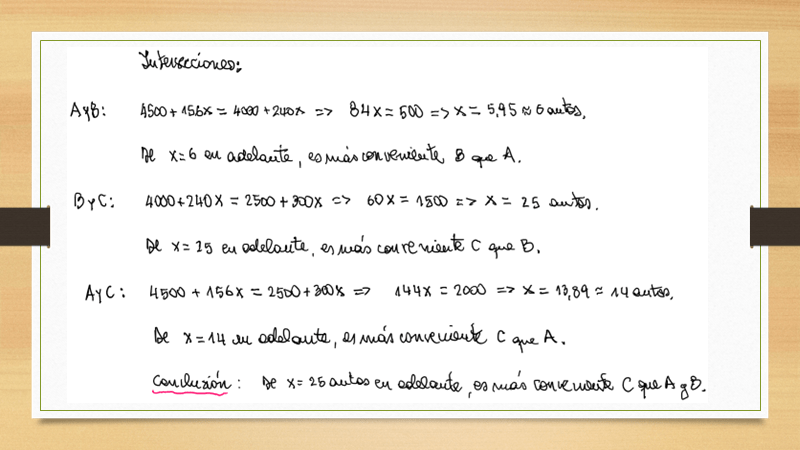 Intersecciones:
A y B: 4500 + 156x = 4000 + 240x => 84x = 500 => x = 5,95 ≈ 6 autos.
De x=6 en adelante, es más conveniente B que A.
B y C: 4000+240x = 2500+300x => 60x = 1500 => x = 25 autos.
De x=25 en adelante, es más conveniente C que B.
A y C: 4500 + 156x = 2500+300x => 144x = 2000 => x = 13,89 ≈ 14 autos.
De x=14 en adelante, es más conveniente C que A.
Conclusión: De x=25 autos en adelante, es más conveniente C que A y B.